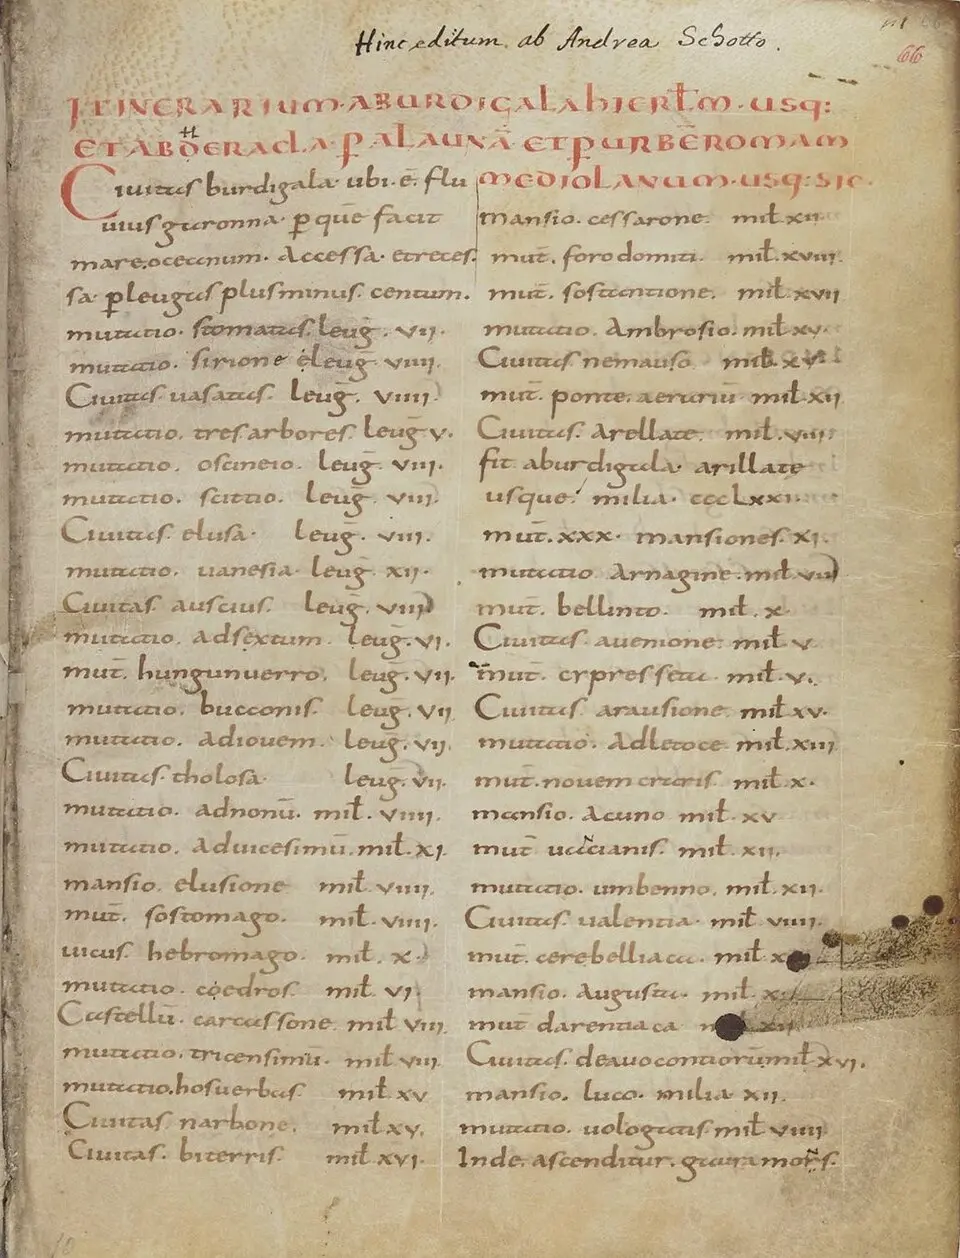 Hinc editum ab Andrea Schotto.
66
ITINERARIUM·ABURDIGALAHIERL̄M·USQ:
ETABDERACLA·PALAUNĀ·ETPURBĒROMAM
MEDIOLANUM·USQ:SIC·
Ciuitas burdigala·ubi·ē·flu
uius garonna·p quē facit
mare·oceanum·Accessa·etreces
sa·pleugas plusminus·centum.
mutatio·stomatas·leug̅·VII·
mutatio·sirione ēleug̅ VIIII·
Ciuitas uasatas·leug̅·VIIII
mutatio·tresarbores·leug̅ V·
mutatio·oscineio·leug̅ VIII·
mutatio·scittio·leug̅ VIII
Ciuitas elusa·leug̅·VIII·
mutatio·uanesia·leug̅ XII·
Ciuitas auscius·leug̅·VIII
mutatio·adsextum·leug̅·VI·
mut̄·hungunuerro·leug̅·VII·
mutatio·bucconis·leug̅·VII
mutatio·adiouem·leug̅·VII·
Ciuitas·tholosa·leug̅·VII·
mutatio·adnonū·mil̄·VIIII·
mutatio·aduicesimū·mil̄·XI·
mansio·elusione mil̄·VIIII·
mut̄·sostomago·mil̄·VIIII·
uicus·hebromago·mil̄·X·
mutatio·coedros·mil̄ VI·
Castellū·carcassone mil̄ VIII·
mutatio·tricensimū·mil̄·VIII·
mutatio·hosuerbas mil̄ XV
Ciuitas narbone·mil̄ XV·
Ciuitas·biterris·mil̄ XVI·
mansio·cessarone·mil̄ XII·
mut̄·forodomiti·mil̄·XVIII·
mut̄·sostantione·mil̄ XVII
mutatio·Ambrosio·mil̄ XV·
Ciuitas nemauso mil̄·XV
mut̄·ponte·aerariū mil̄·XII
Ciuitas·Arellate·mil̄·VIII·
fit aburdigala·arillate
usque·milia·CCCLXXI·
mut̄·XXX·mansiones·XI·
mutatio Arnagine·mil̄·VIII
mut̄·bellinto·mil̄·X·
Ciuitas auenione·mil̄ V·
mut̄·cypresseta·mil̄·V·
Ciuitas arausione·mil̄ XV·
mutatio·Adletoce mil̄·XIII
mut̄·nouem craris·mil̄ X·
mansio·Acuno mil̄·XV
mut̄ uancianis·mil̄·XII·
mutatio·umbenno·mil̄·XII·
Ciuitas·ualentia·mil̄ VIIII·
mut̄·cerebelliaca·mil̄ X
mansio·Augusta·mil̄·X·
mut̄ darentiaca XII
Ciuitas·deauocontiorūmil̄ XVI·
mansio·luco·milia XII·
mutatio·uologatis·mil̄ VIIII
Inde·ascenditur·gaura mons·